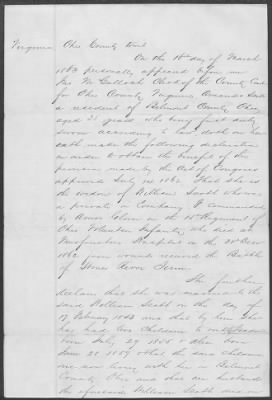 Virginia Ohio County Court
On the 18th day of March
1863 personally appeared before me
Clerk of the County Court
for Ohio County Virginia Scott
a resident of Belmont County Ohio
aged years who being first duly
sworn according to law doth on her
oath made the following declaration
in order to obtain the benefit of the
provision made by the Act of Congress
approved July 14 1862 That she is
the widow of William Scott who was
a private in Company commanded
by in the 15 Regiment of
Ohio Volunteer Infantry who died at
Hospital on the Decr
1862 from wounds received the Battle
of Stones River Tenn.
She further
declares that she was married to the
said William Scott on the day of
17 February and that by him she
has had two Children to
born July 29 1855 & also born
June 22 1857 & that the said children
are now living with her in Belmont
County Ohio and that her husband
the aforesaid William Scott died on